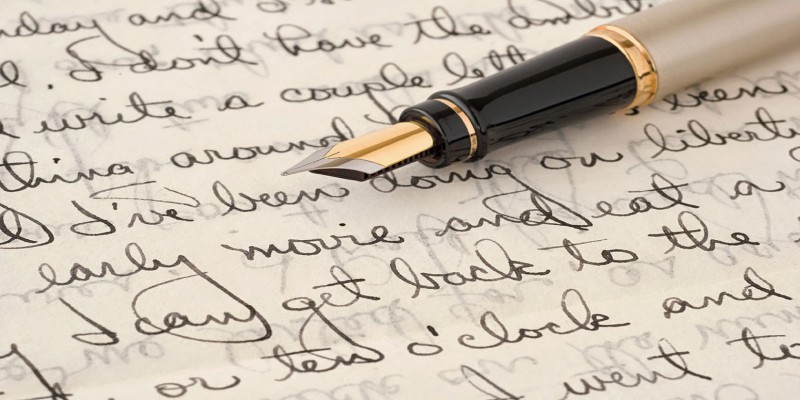 and I
I don't have the
write a couple
around been
I've been doing on liberty
early movie and eat a
I can get back to the
or ten o'clock and
I went to